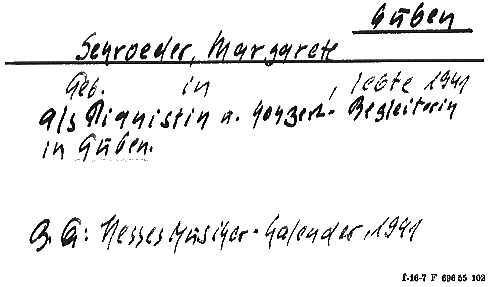 Guben
Schroeder, Margarete
Geb. in , lebte 1941
als Pianistin u. Konzert-Begleiterin
in Guben.
Hesses Musiker-Kalender, 1941
f-16-7 F 696 55 102